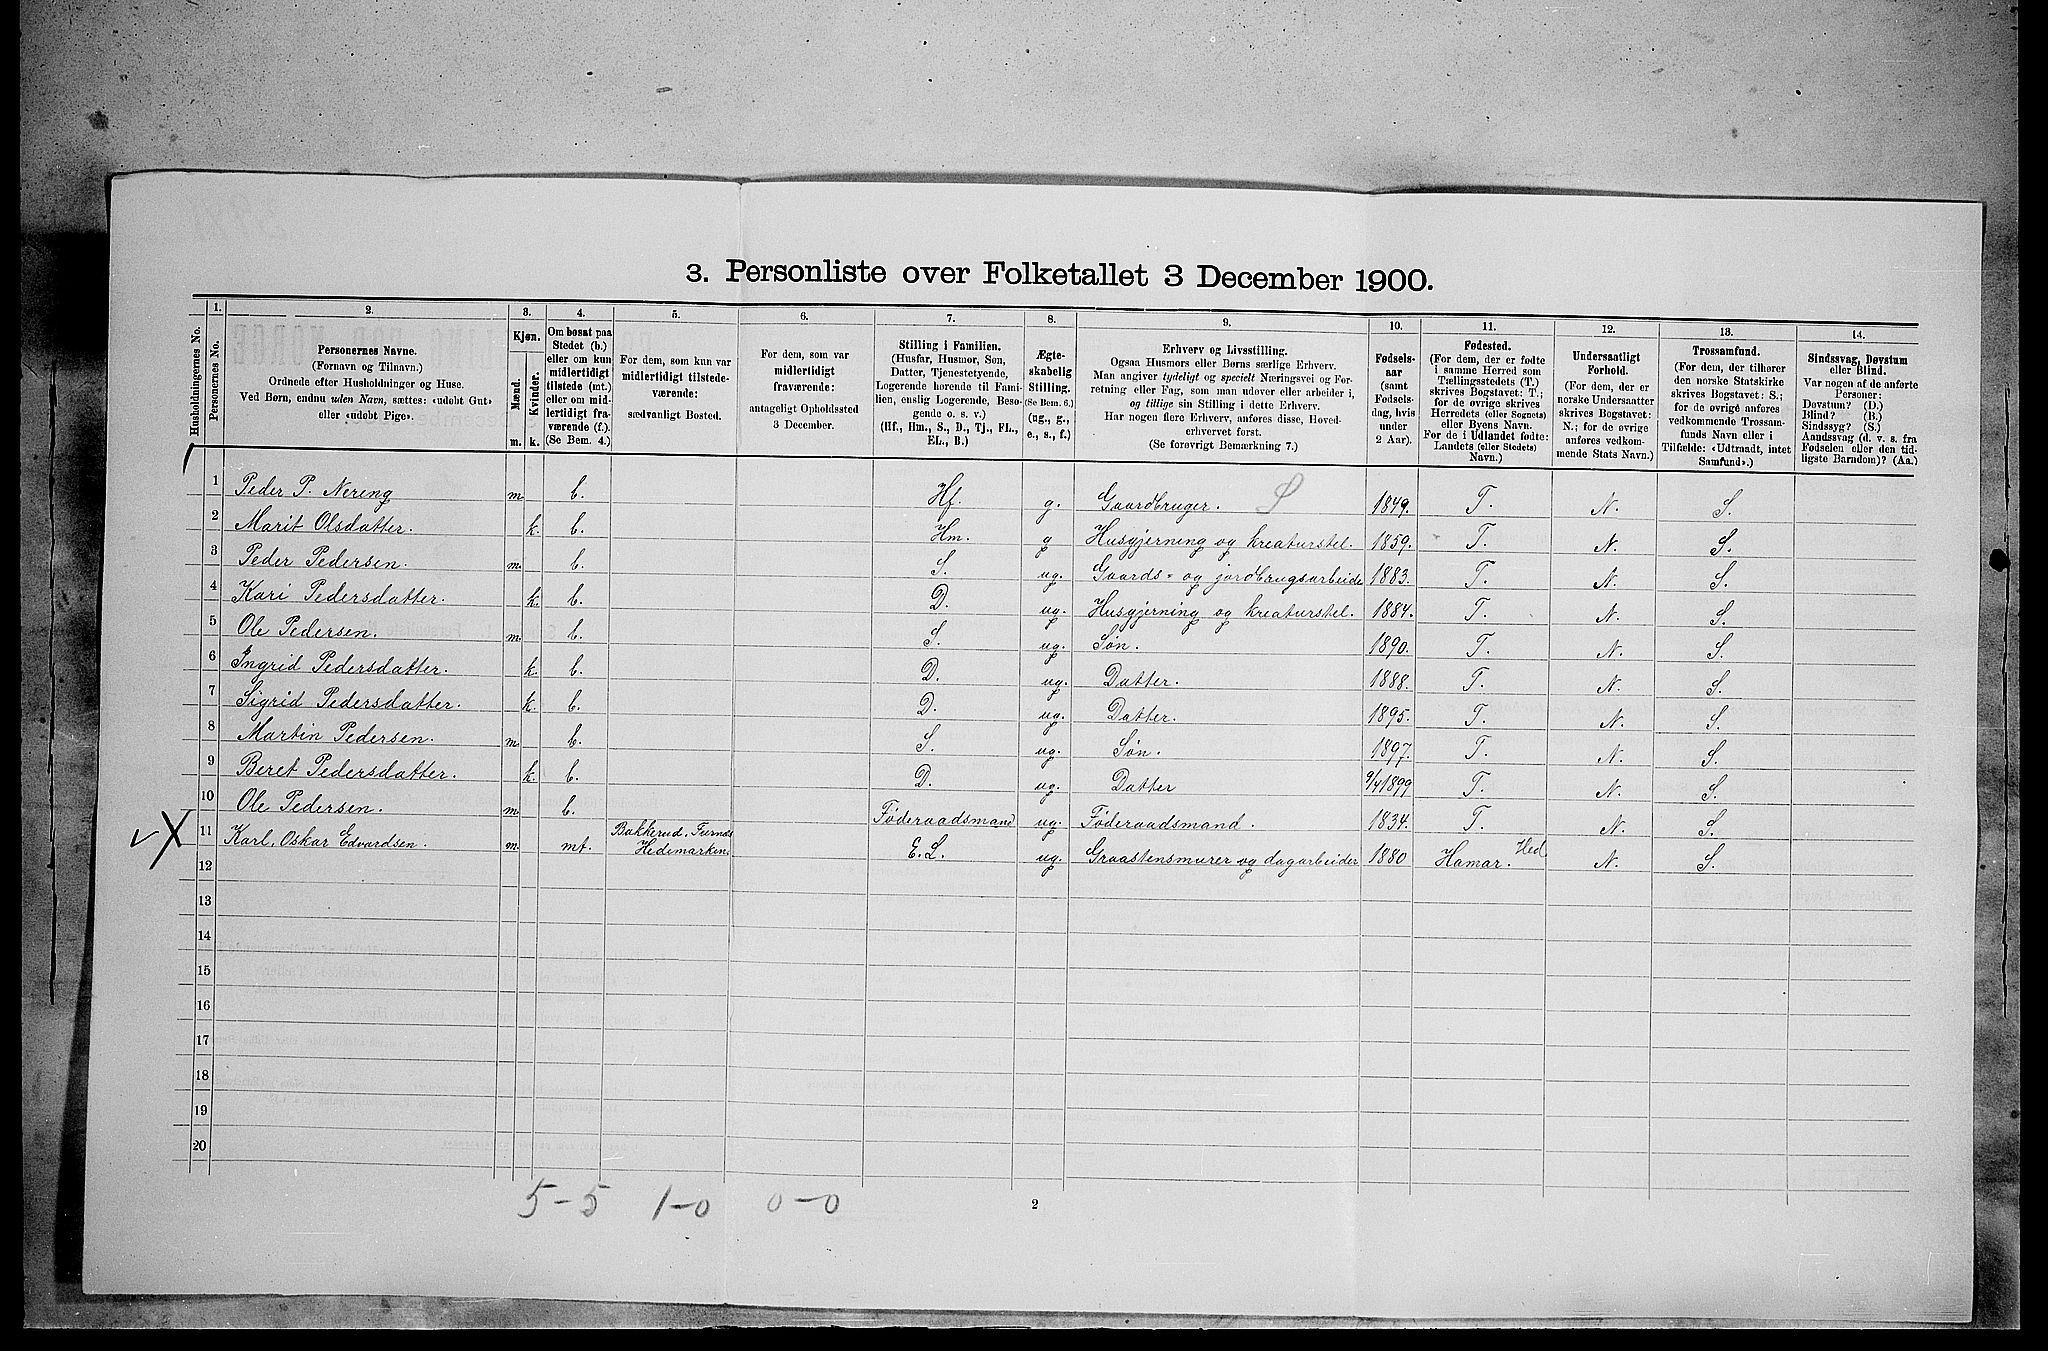 3. Personliste over Folketallet 3 December 1900.
Husholdningernes No.
1. Personernes No.
2. Personernes Navne. (Fornavn og Tilnavn.) Ordnede efter Husholdninger og Huse. Ved Børn, endnu uden Navn, sættes: «udøbt Gut» eller «udøbt Pige».
3. Kjøn. Mænd. m. Kvinder. k.
4. Om bosat paa Stedet (b.) eller om kun midlertidigt tilstede (mt.) eller om midlertidigt fraværende (f.). (Se Bem. 4.)
5. For dem, som kun var midlertidigt tilstedeværende: sædvanligt Bosted.
6. For dem, som var midlertidigt fraværende: antageligt Opholdssted 3 December.
7. Stilling i Familien. (Husfar, Husmor, Søn, Datter, Tjenestetyende, Logerende hørende til Familien, enslig Logerende, Besøgende o. s. v.) (Hf., Hm., S., D., Tj., FL., EL., B.)
8. Ægteskabelig Stilling. (Se Bem. 6.) (ug., g., e., s., f.)
9. Erhverv og Livsstilling. Ogsaa Husmors eller Børns særlige Erhverv. Man angiver tydeligt og specielt Næringsvei og Forretning eller Fag, som man udover eller arbeider i, og tillige sin Stilling i dette Erhverv. Har nogen flere Erhverv, anføres disse, Hovederhvervet først. (Se forøvrigt Bemærkning 7.)
10. Fødselsaar (samt Fødselsdag, hvis under 2 Aar).
11. Fødested. (For dem, der er fødte i samme Herred som Tællingsstedets (T.) skrives Bogstavet: T.; for de øvrige skrives Herredets (eller Sognets) eller Byens Navn. For de i Udlandet fødte: Landets (eller Stedets) Navn.)
12. Undersaatligt Forhold. (For dem, der er norske Undersaatter skrives Bogstavet: N.; for de øvrige anføres vedkommende Stats Navn.)
13. Trossamfund. (For dem, der tilhører den norske Statskirke skrives Bogstavet: S.; for de øvrige anføres vedkommende Trossamfunds Navn eller i Tilfælde: «Udtraadt, intet Samfund».)
14. Sindssvag, Døvstum eller Blind. Var nogen af de anførte Personer: Døvstum? (D.) Blind? (B.) Sindssyg? (S.) Aandssvag (d. v. s. fra Fødselen eller den tidligste Barndom)? (Aa.)
1 Peder P. Nereng m. b. Hf. g. Gaardbruger. S 1849. T. N. S.
2 Marit Olsdatter. k. b. Hm. g Husgjerning og kreaturstel. 1859. T. N. S.
3 Peder Pedersen. m. b. S. ug. Gaards- og jordbrugsarbeide 1883. T. N. S.
4 Kari Pedersdatter. k. b. D. ug. Husgjerning og kreaturstel. 1884. T. N. S.
5 Ole Pedersen. m. b. S. ug. Søn. 1890. T. N. S.
6 Ingrid Pedersdatter. k. b. D. ug. Datter. 1888. T. N. S.
7 Sigrid Pedersdatter. k. b. D. ug. Datter. 1895. T. N. S.
8 Martin Pedersen. m. b. S. ug. Søn. 1897. T. N. S.
9 Beret Pedersdatter. k. b. D. ug. Datter 9/4 1899 T. N. S.
10 Ole Pedersen. m. b. Føderaadsmand ug. Føderaadsmand. 1834. T. N. S.
v X 11 Karl. Oskar Edvardsen. m mt. Bakkerud, Furnes Hedemarken. E. L. ug. Graastensmurer og dagarbeider 1880 Hamar. Hed N. S.
12
13
14
15
16
17
18
19
20
5-5 1-0 0-0
2